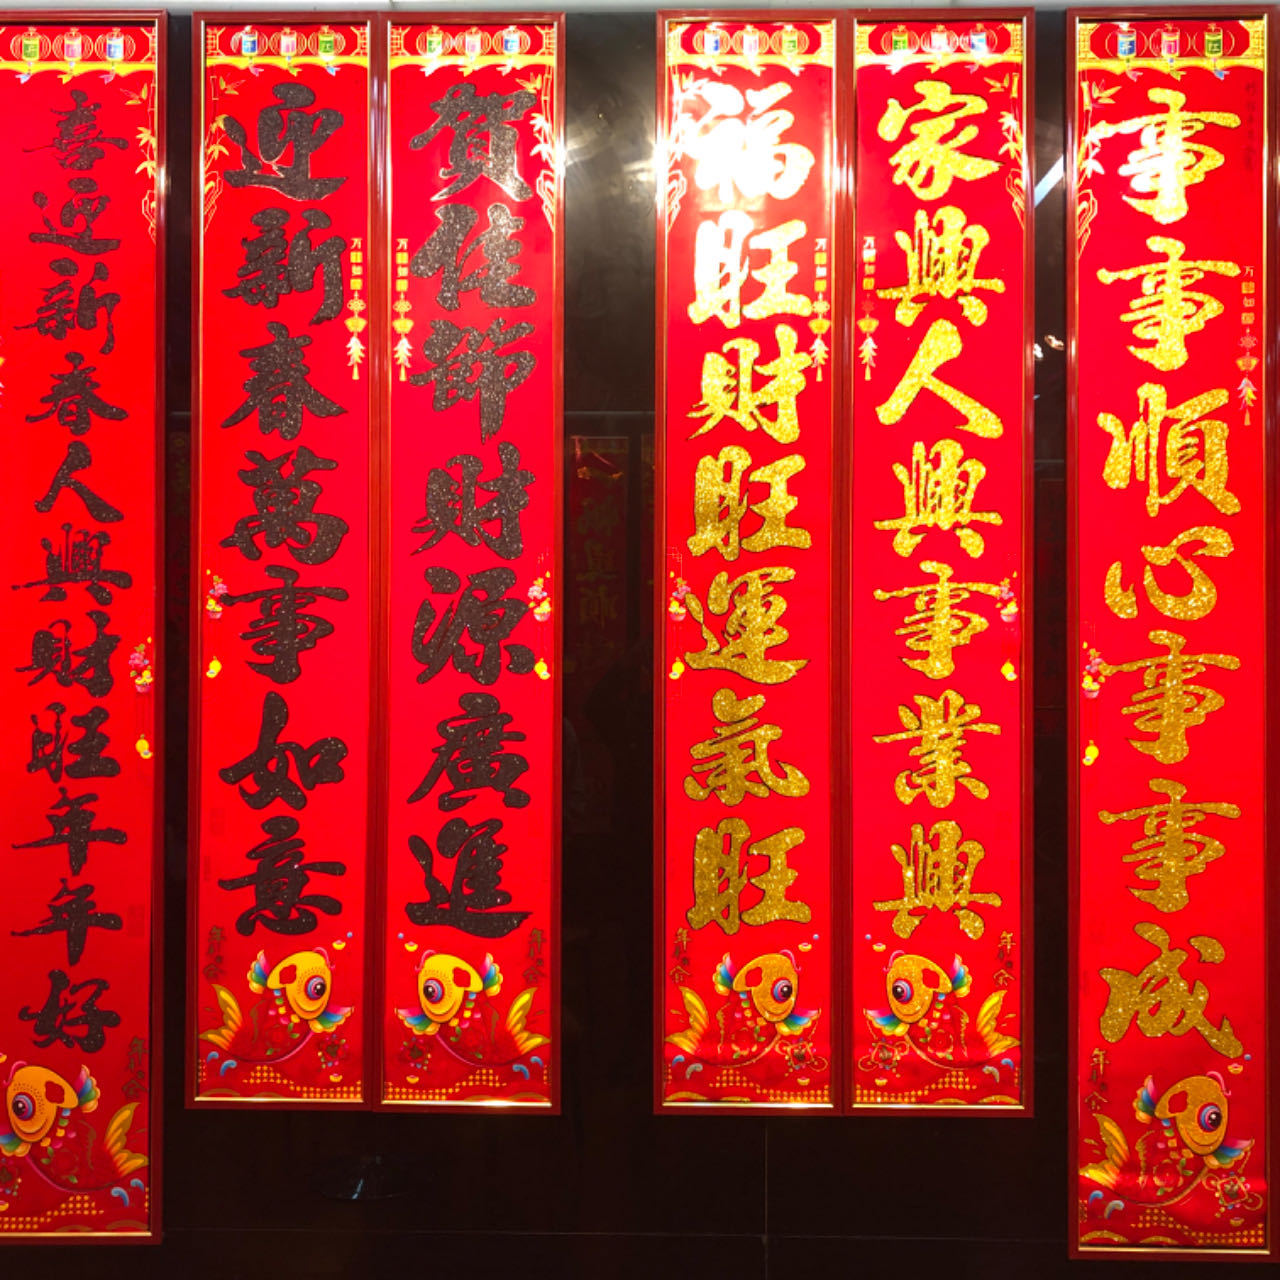 事事順心事事成
家興人興事業興
福旺財旺運氣旺
賀佳節財源廣進
迎新春萬事如意
喜迎新春人興財旺年年好